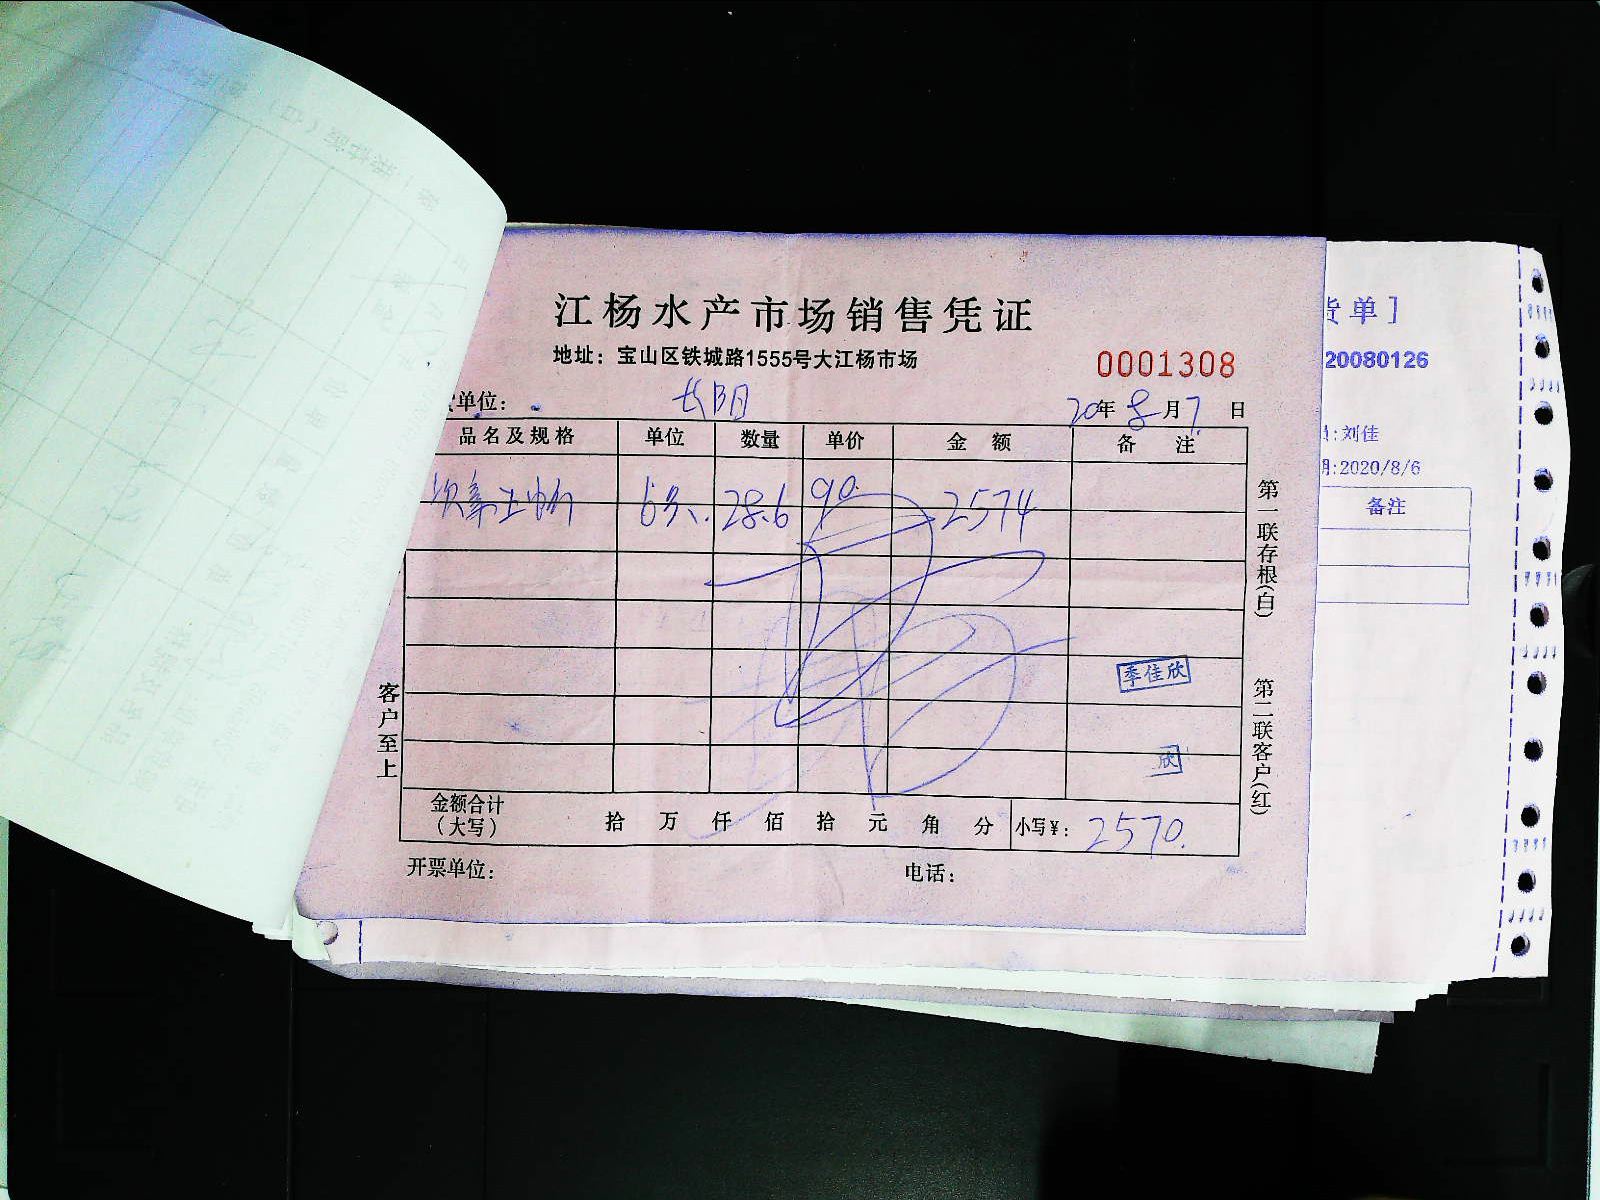 江杨水产市场销售凭证
地址：宝山区铁城路1555号大江杨市场
0001308
单位： 长阳
20年8月7日
品名及规格 单位 数量 单价 金额 备注
28.6 90 2574
季佳欣
欣
金额合计（大写） 拾 万 仟 佰 拾 元 角 分 小写¥：2570.
开票单位： 电话：
客户至上
第一联存根(白)
第二联客户(红)
货单]
20080126
:刘佳
期:2020/8/6
备注